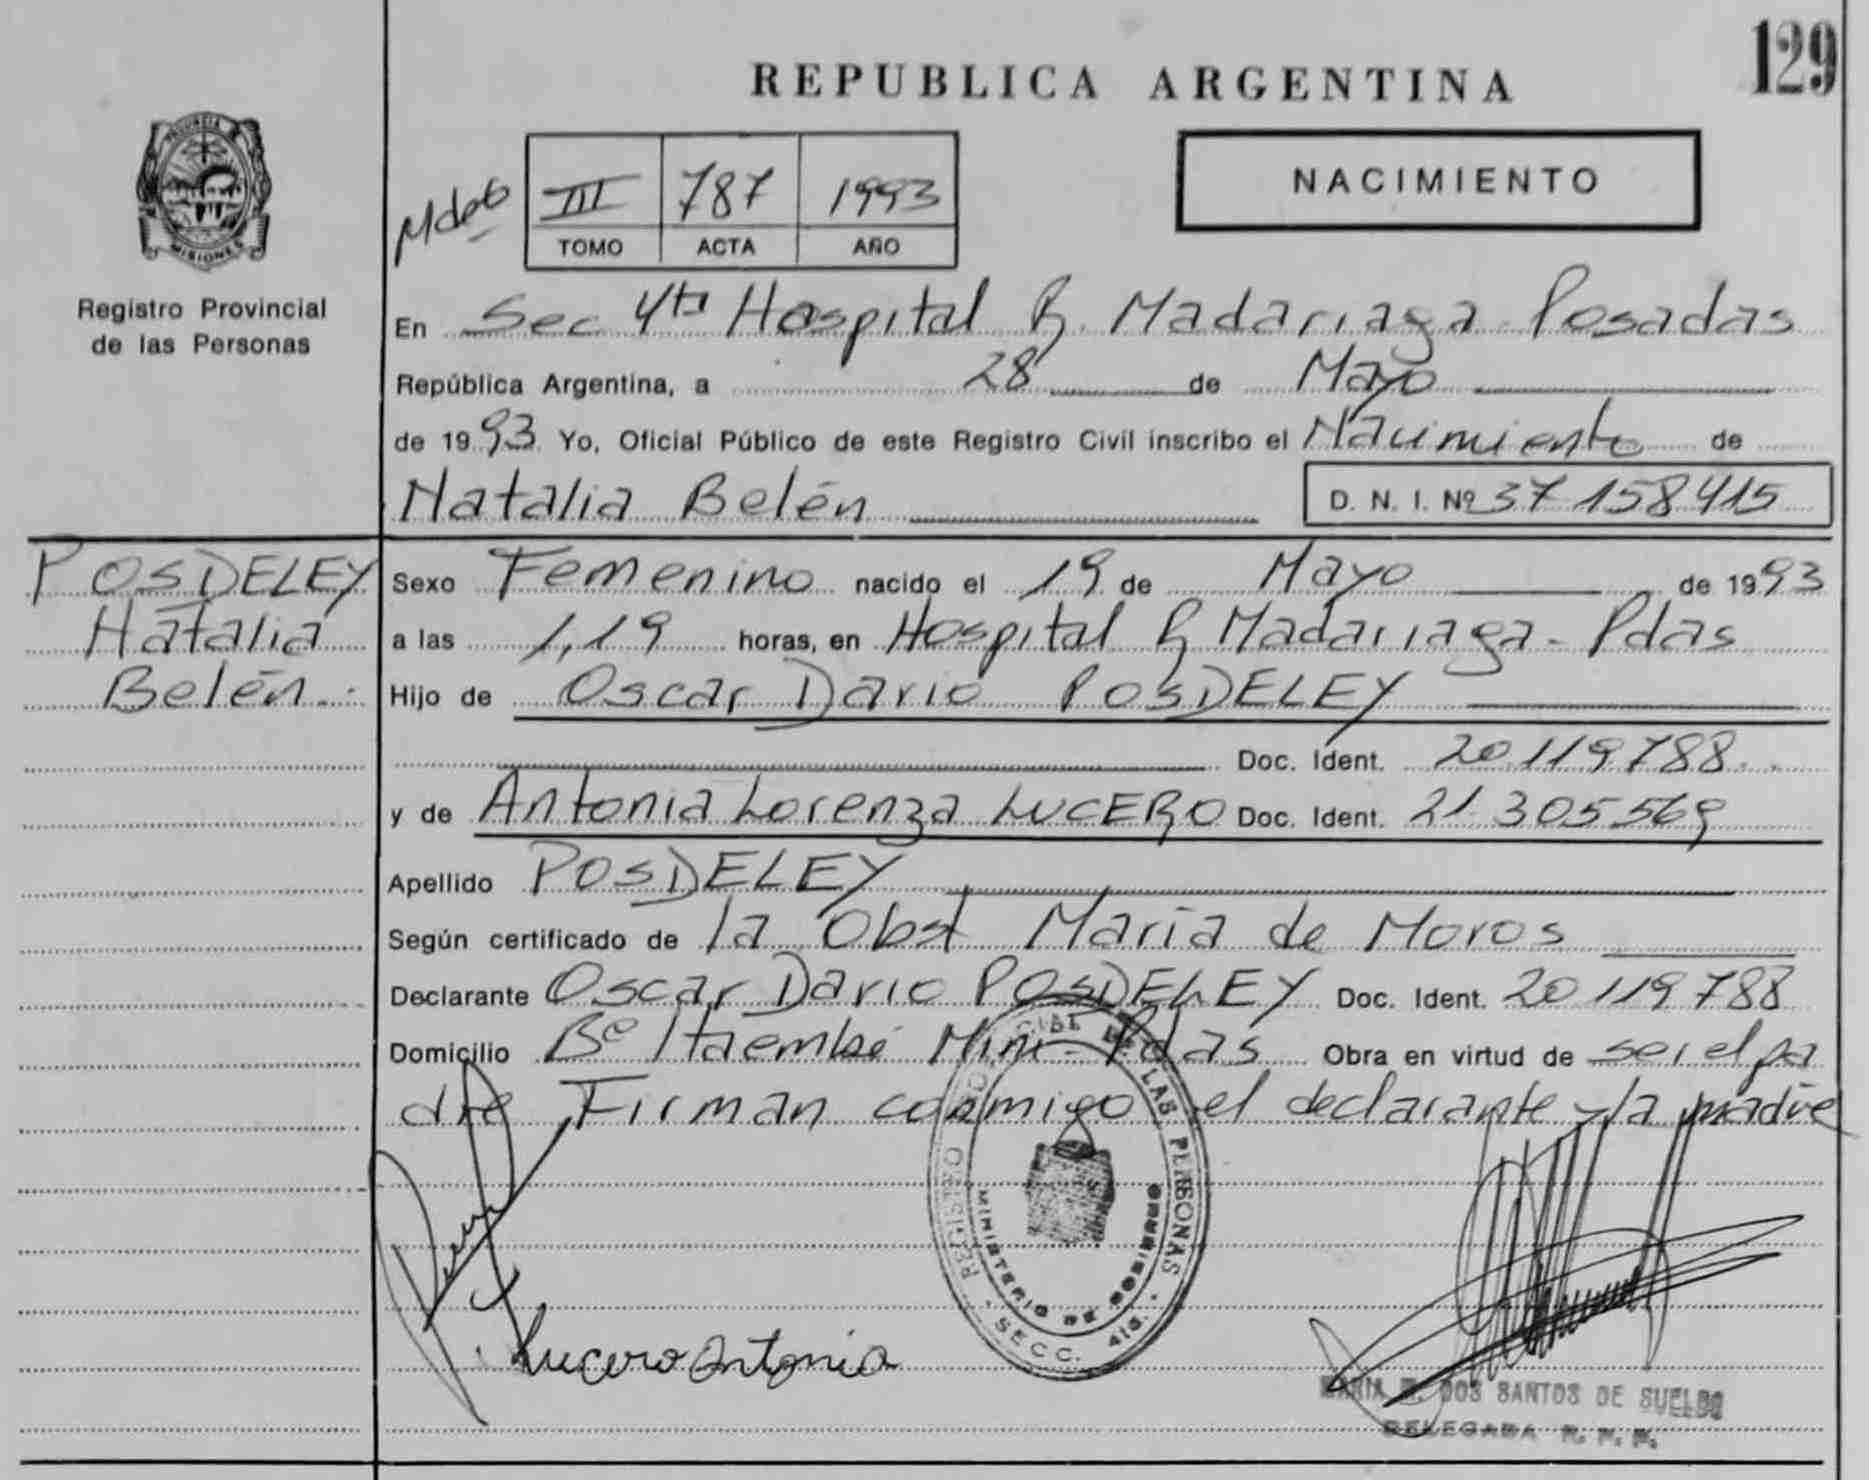 129
REPUBLICA ARGENTINA
NACIMIENTO
III 787 1993
TOMO ACTA AÑO
PROVINCIA DE
MISIONES
Registro Provincial
de las Personas
En Sec 4ta Hospital R. Madariaga Posadas
República Argentina, a 28 de Mayo
de 1993 Yo, Oficial Público de este Registro Civil inscribo el Nacimiento de
Natalia Belén D. N. I. Nº 37 158 415
POSDELEY
Natalia
Belén.
Sexo Femenino nacido el 19 de Mayo de 1993
a las 1,19 horas, en Hospital R Madariaga - Pdas
Hijo de Oscar Dario POSDELEY
Doc. Ident. 20.119.788
y de Antonia Lorenza LUCERO Doc. Ident. 21.305.569
Apellido POSDELEY
Según certificado de la Obst Maria de Moros
Declarante Oscar Dario POSDELEY Doc. Ident. 20 119 788
Domicilio Bº Itaembé Mini - Pdas Obra en virtud de ser el pa
dre Firman conmigo el declarante y la madre
REGISTRO PROVINCIAL DE LAS PERSONAS
MINISTERIO DE GOBIERNO
SECC. 4ta.
Lucero Antonia
MARIA DOS SANTOS DE SUELDO
DELEGADA R. P. P.